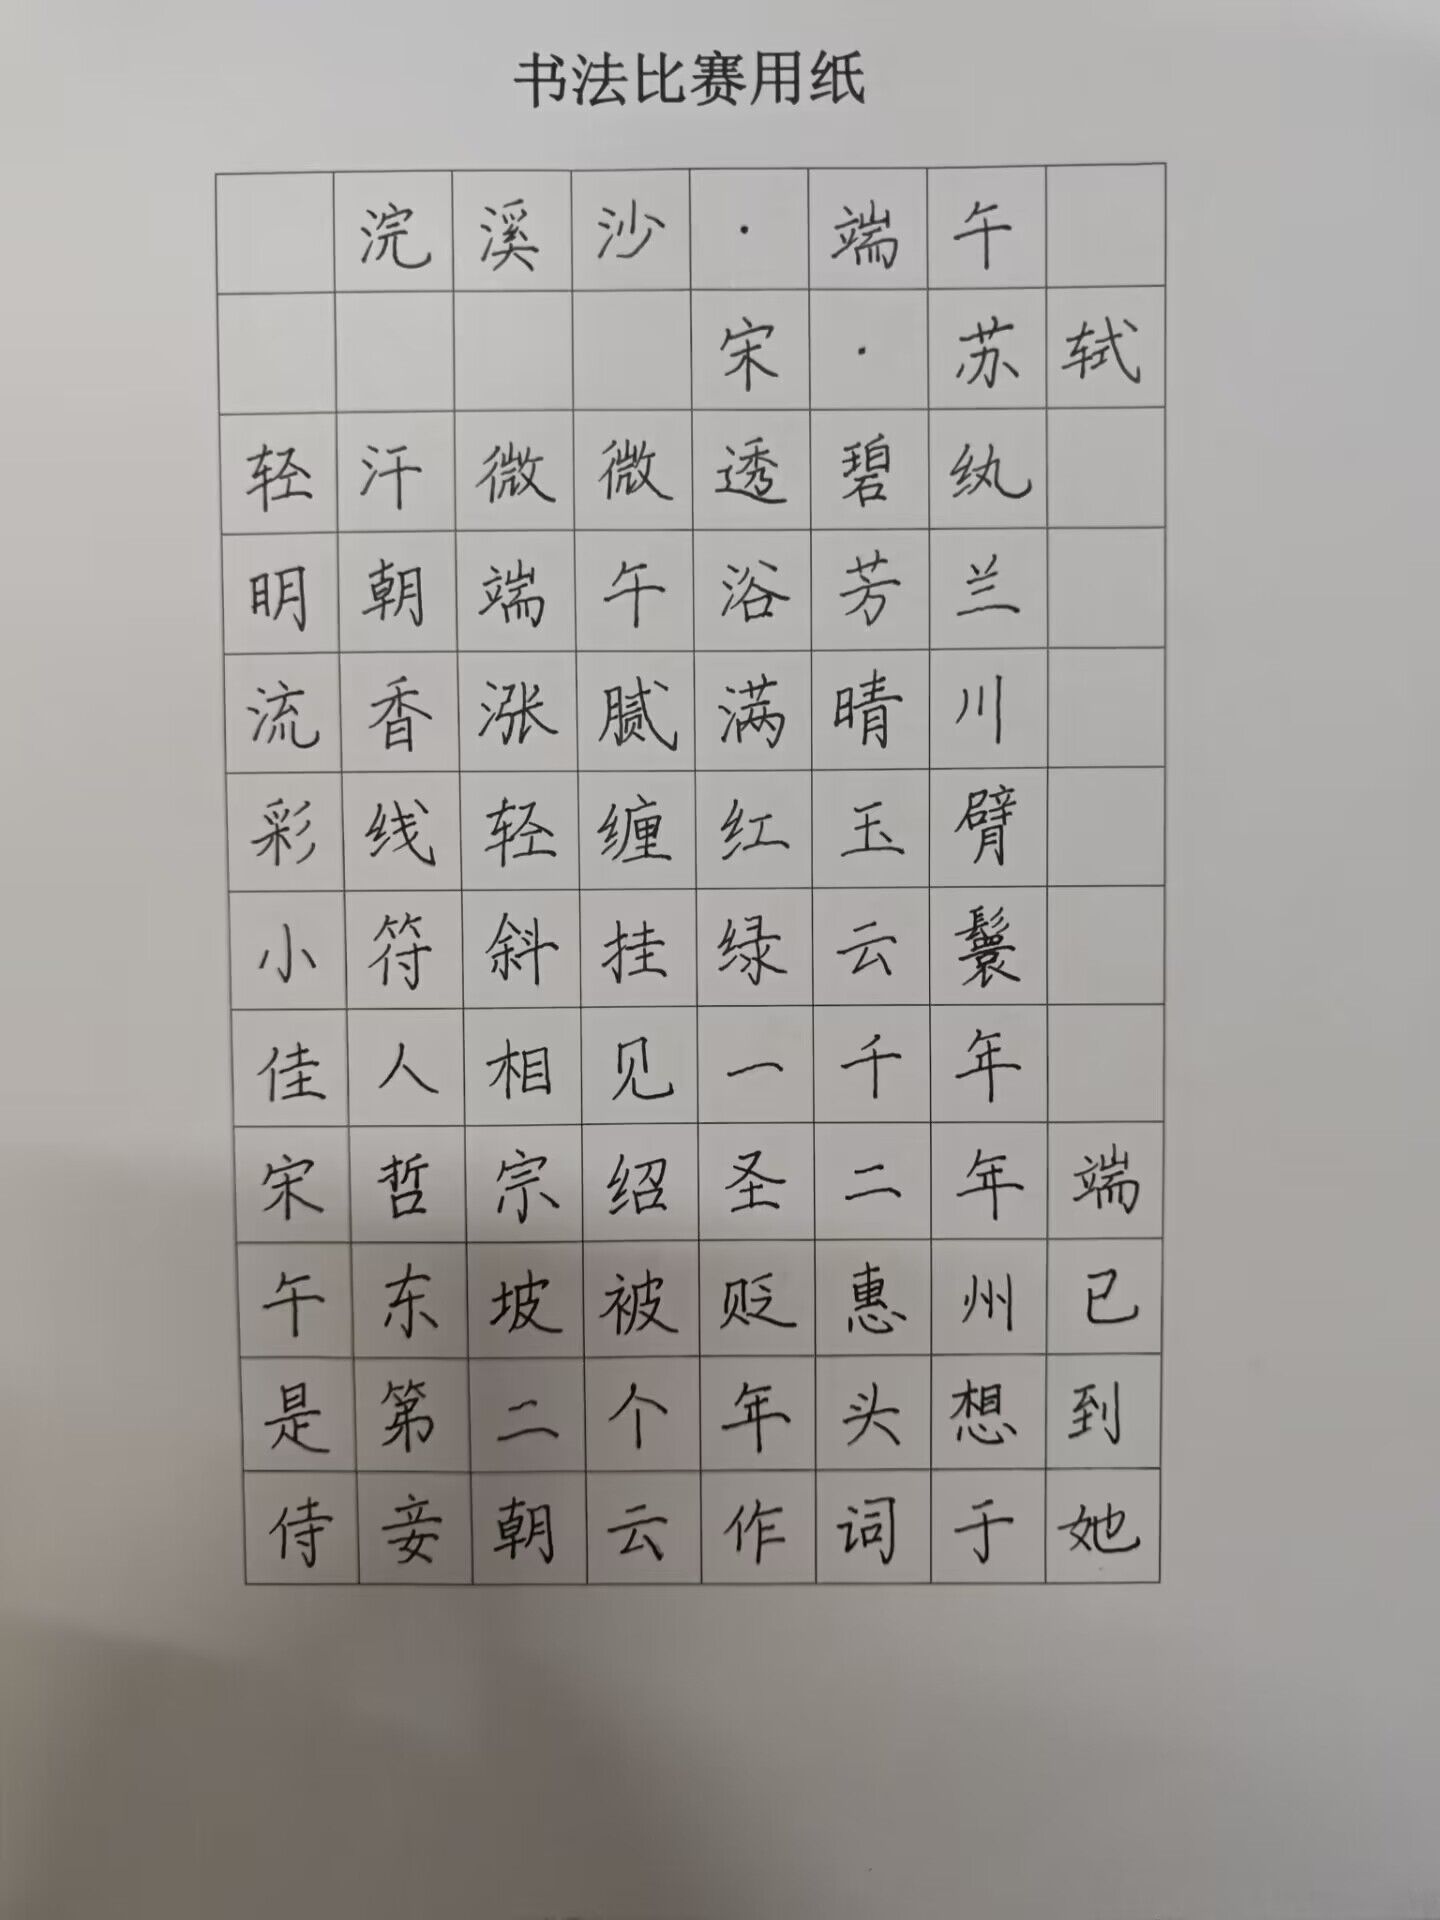 书法比赛用纸
浣溪沙·端午
宋·苏轼
轻汗微微透碧纨
明朝端午浴芳兰
流香涨腻满晴川
彩线轻缠红玉臂
小符斜挂绿云鬟
佳人相见一千年
宋哲宗绍圣二年端
午东坡被贬惠州已
是第二个年头想到
侍妾朝云作词于她